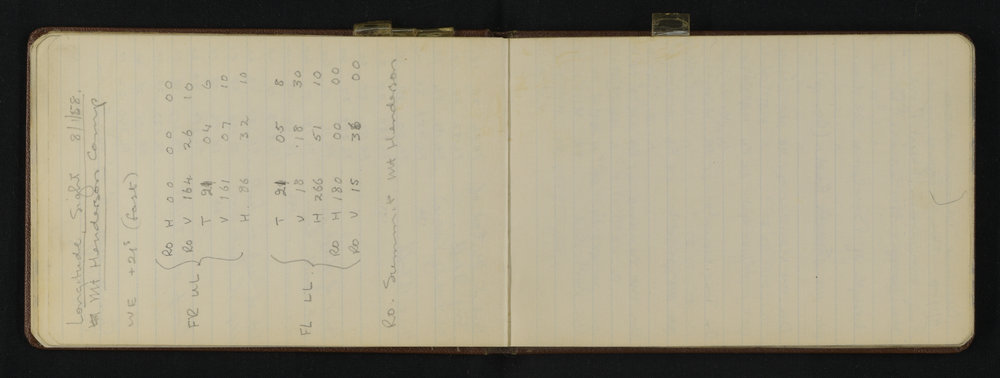 Longitude Sight 8/1/58.
Mt Henderson Camp
WE +21s (fast)
RO H 00 00 00
RO V 164 26 10
FR UL T 21 04 6
V 161 07 10
H. 86 32 10
T 21 05 8
V 18 18 30
FL LL. H 266 51 10
RO H 180 00 00
RO V 15 36 00
RO. Summit Mt Henderson.